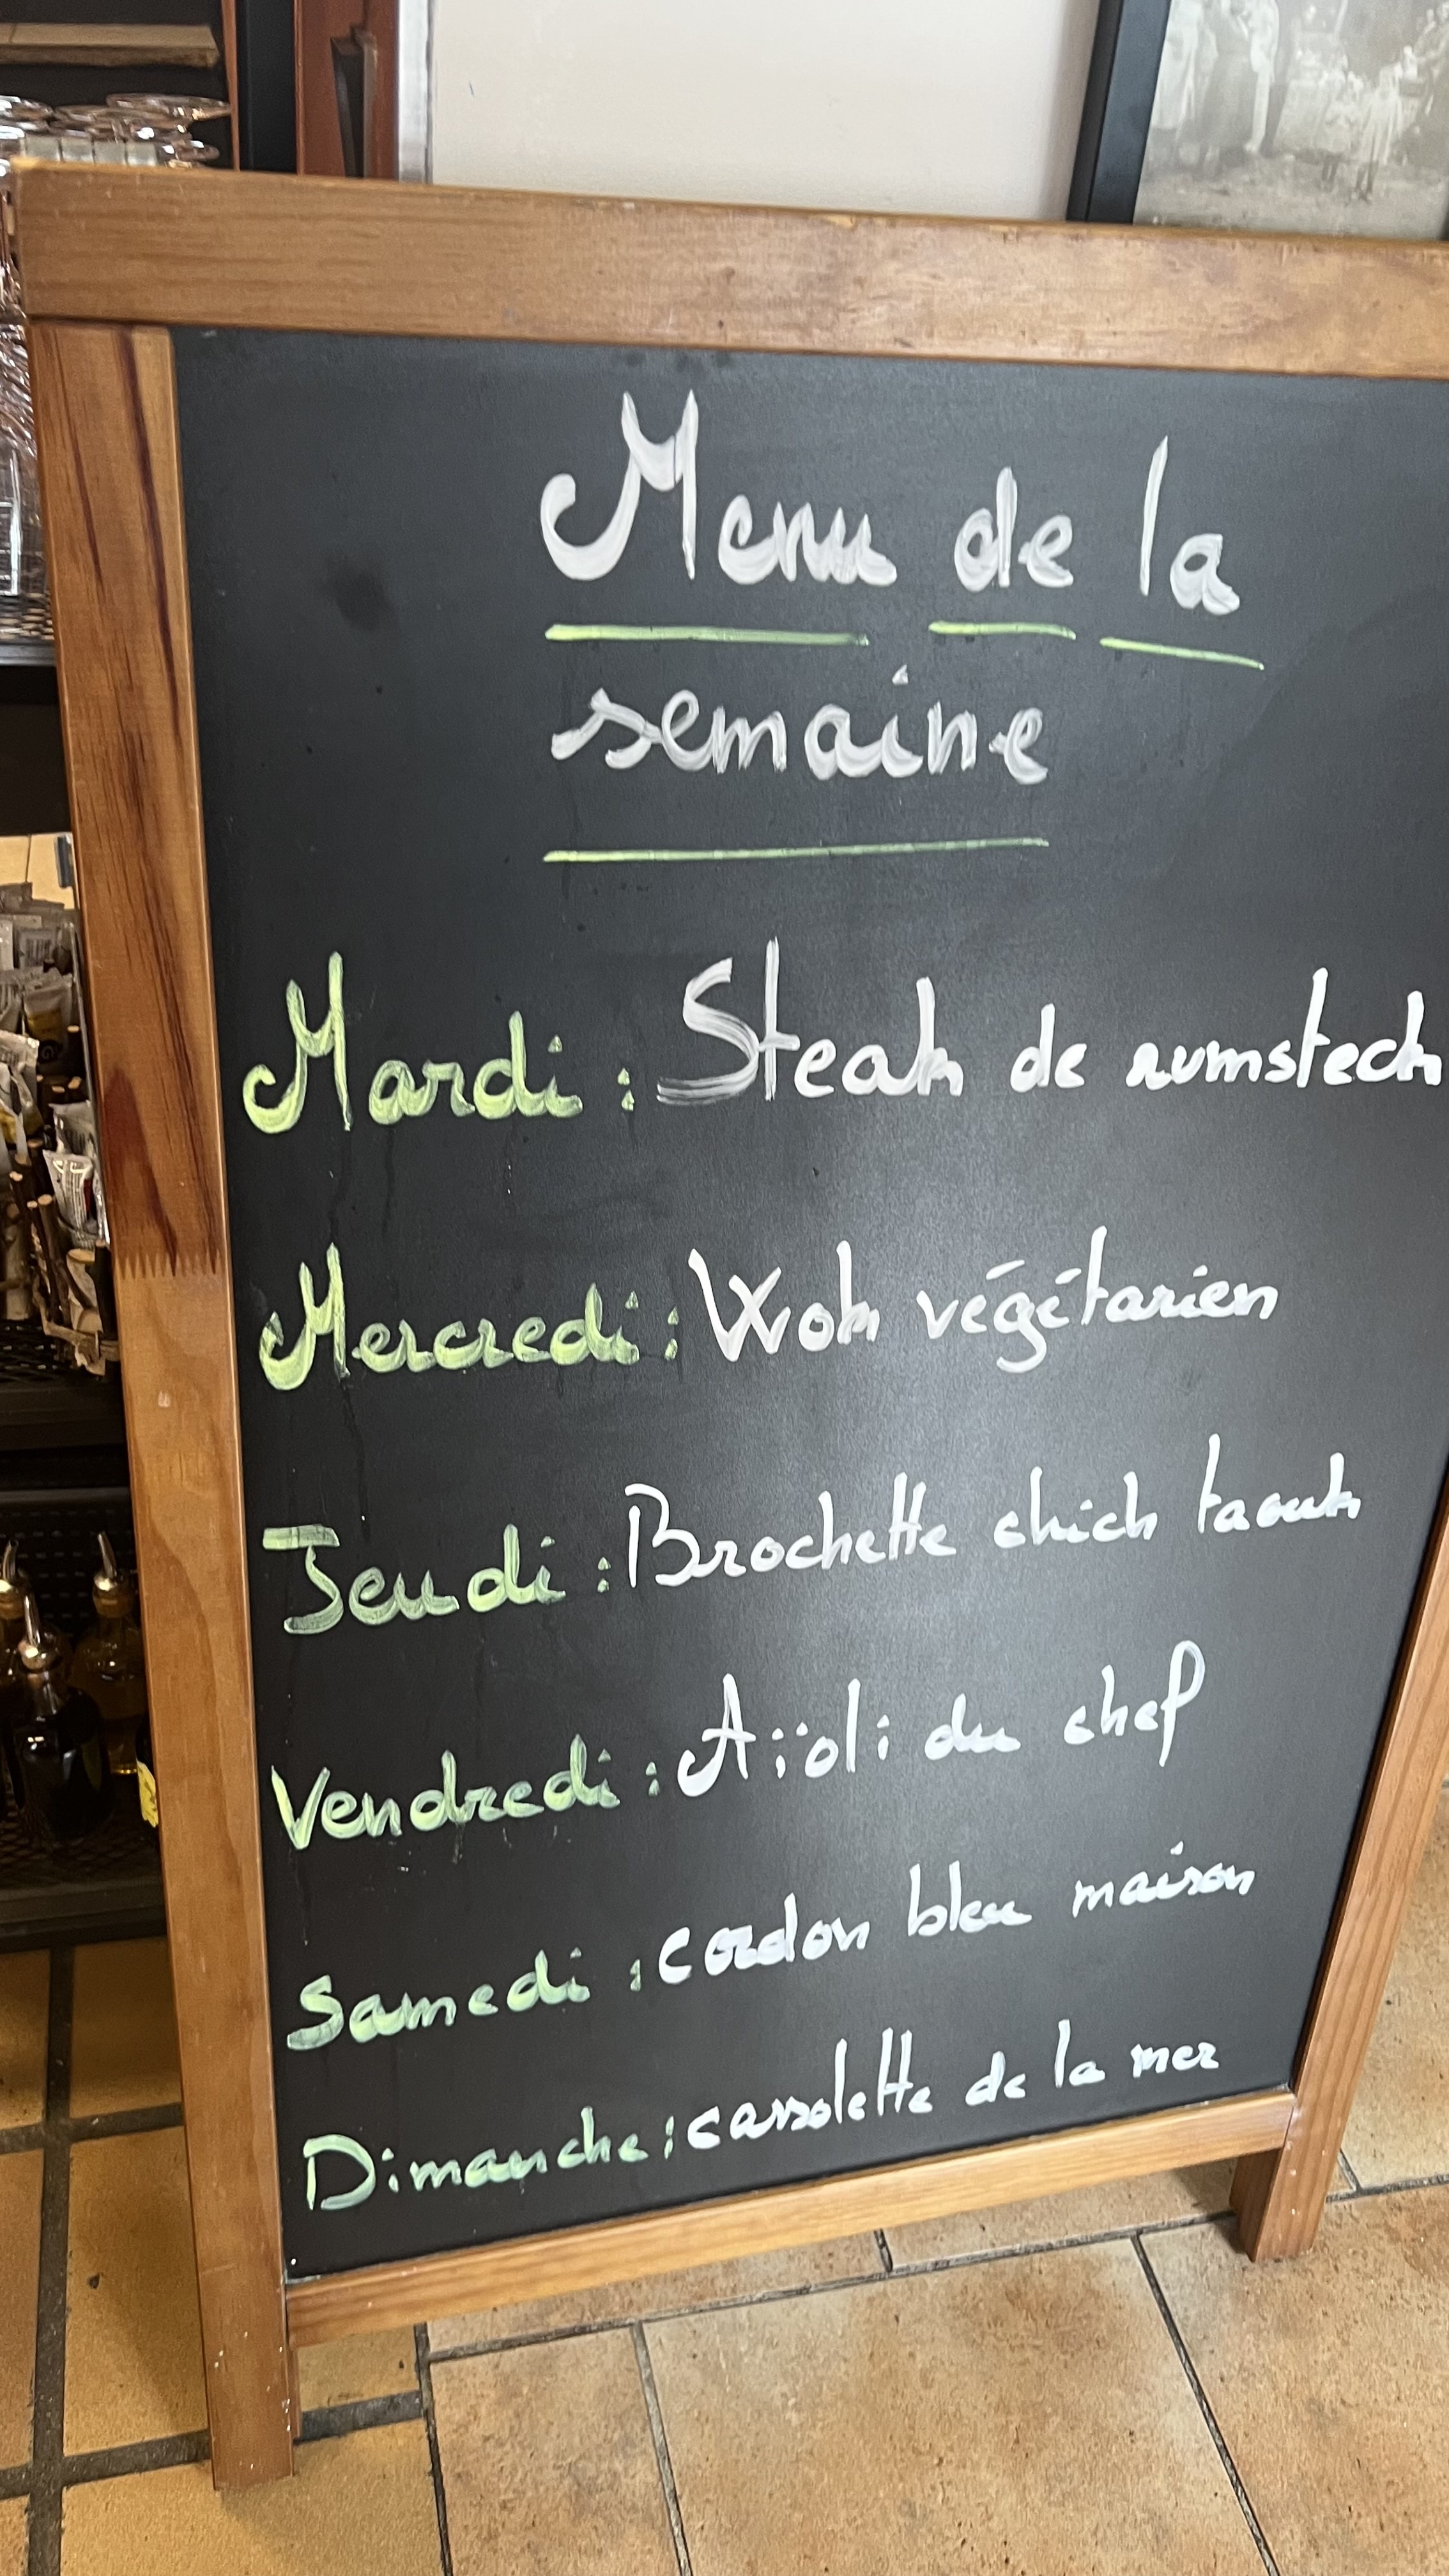 Menu de la
semaine
Mardi : Steak de rumsteck
Mercredi : Wok végétarien
Jeudi : Brochette chich taouk
Vendredi : Aïoli du chef
Samedi : cordon bleu maison
Dimanche : cassolette de la mer